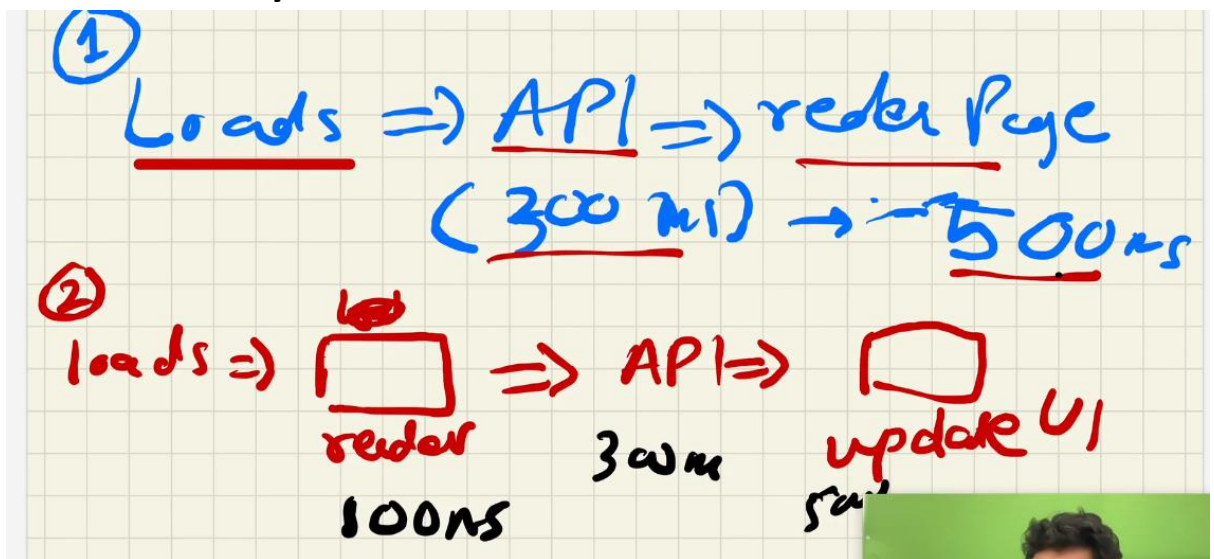 1
Loads => API => reder Page
(300 ms) → 500ms
2
loads => => API =>
render update UI
100ms 300m